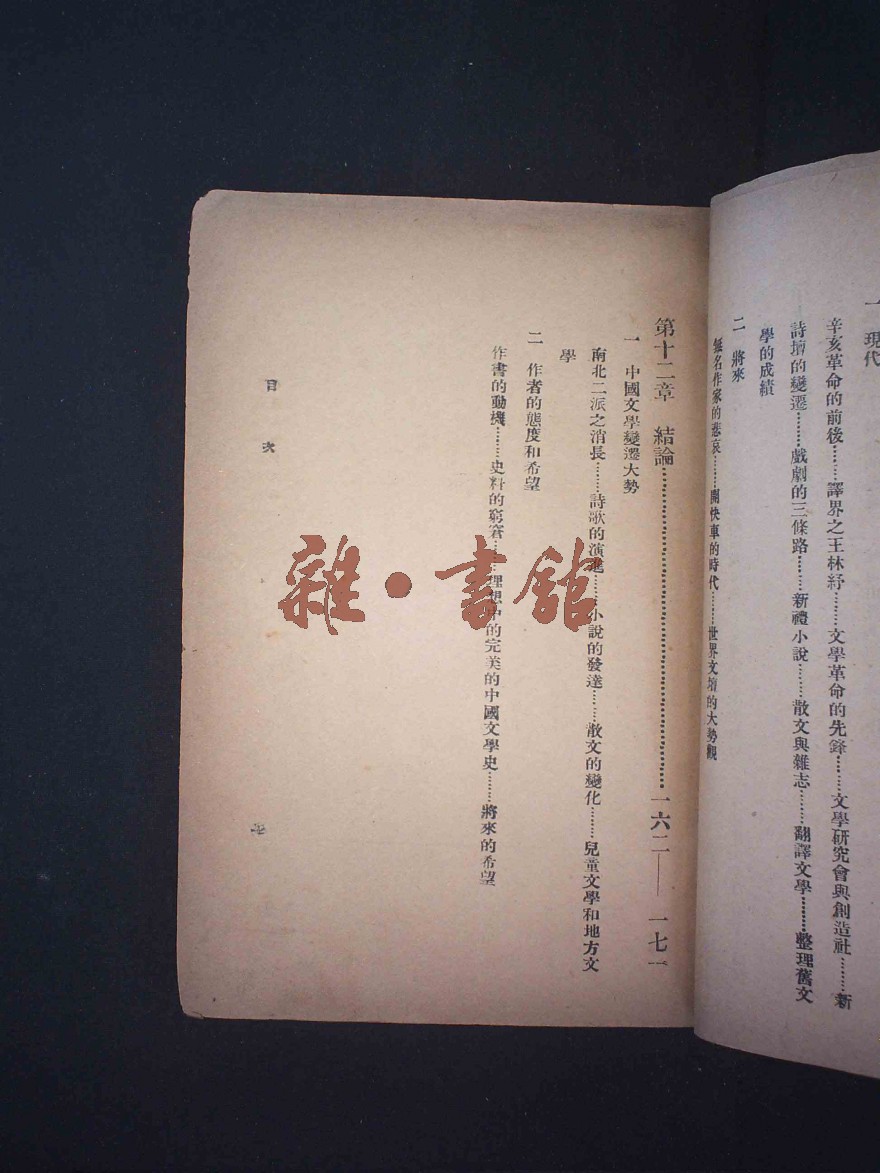 一　現代
辛亥革命的前後………譯界之王林紓………文學革命的先鋒………文學研究會與創造社………新
詩壇的變遷………戲劇的三條路………新禮小說………散文與雜志………翻譯文學………整理舊文
學的成績
二　將來
無名作家的悲哀………開快車的時代………世界文壇的大勢觀
第十二章　結論………一六二——一七一
一　中國文學變遷大勢
南北二派之消長………詩歌的演進………小說的發達………散文的變化………兒童文學和地方文
學
二　作者的態度和希望
作書的動機………史料的窮窘………理想中的完美的中國文學史………將來的希望
目　次
雜·書館